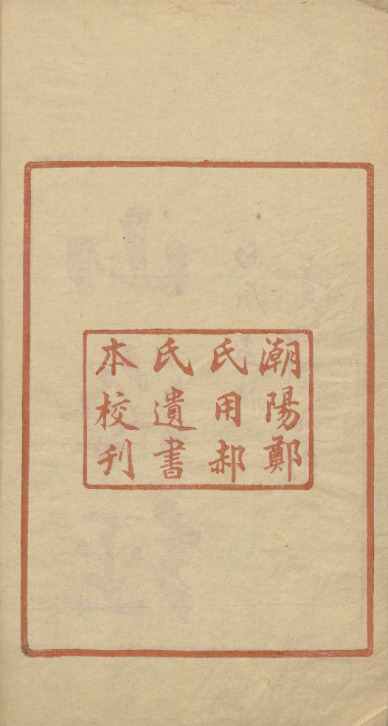 潮陽鄭
氏用郝
氏遺書
本校刊